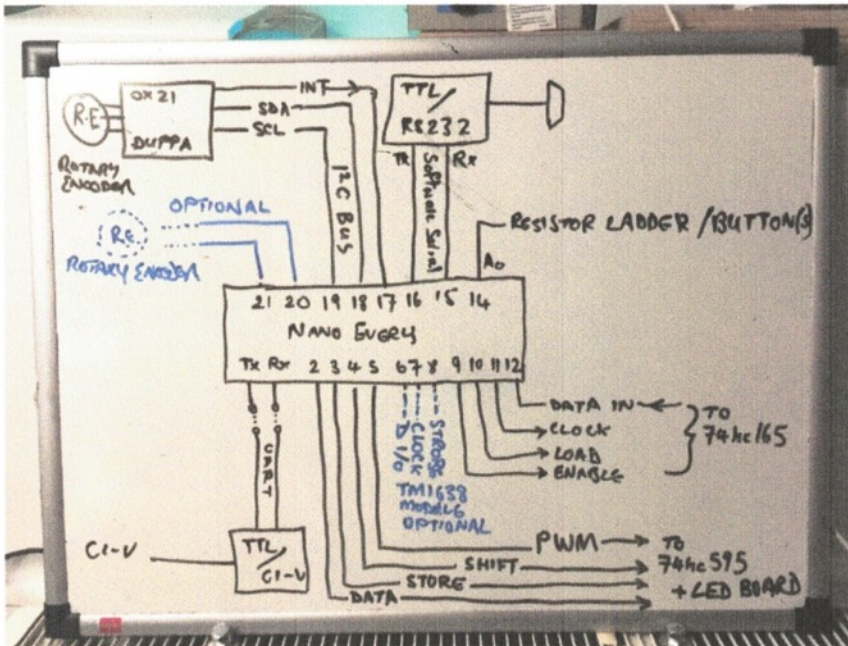 OX21
DUPPA
R.E
ROTARY
ENCODER
INT
SDA
SCL
I²C BUS
TTL /
RS232
Tx
Rx
Software Serial
OPTIONAL
R.E
ROTARY ENCODER
RESISTOR LADDER / BUTTON(S)
A0
21 20 19 18 17 16 15 14
NANO EVERY
Tx Rx 2 3 4 5 6 7 8 9 10 11 12
UART
TTL /
CI-V
CI-V
D I/O
CLOCK
STROBE
TM1638
MODULE
OPTIONAL
DATA IN
CLOCK
LOAD
ENABLE
TO
74hc165
PWM
SHIFT
STORE
DATA
TO
74hc595
+ LED BOARD